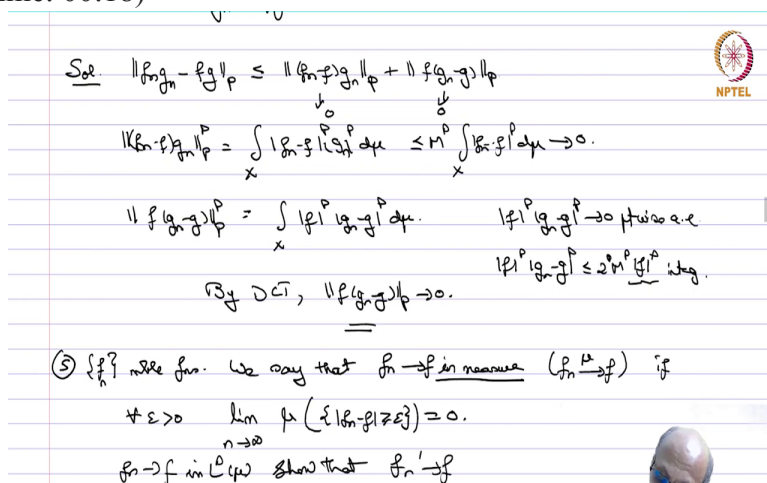 Sol. ‖fₙgₙ - fg‖ₚ ≤ ‖(fₙ-f)gₙ‖ₚ + ‖f(gₙ-g)‖ₚ
↓ 0 ↓ 0
NPTEL
‖(fₙ-f)gₙ‖ₚᵖ = ∫_X |fₙ-f|ᵖ|gₙ|ᵖ dμ ≤ Mᵖ ∫_X |fₙ-f|ᵖ dμ → 0.
‖f(gₙ-g)‖ₚᵖ = ∫_X |f|ᵖ |gₙ-g|ᵖ dμ. |f|ᵖ |gₙ-g|ᵖ → 0 ptwise a.e.
|f|ᵖ |gₙ-g|ᵖ ≤ 2ᵖMᵖ|f|ᵖ integ.
By DCT, ‖f(gₙ-g)‖ₚ → 0.
⑤ {fₙ} mble fns. We say that fₙ → f in measure (fₙ →^μ f) if
∀ ε>0 lim_{n→∞} μ({|fₙ-f| ≥ ε}) = 0.
fₙ → f in Lᵖ(μ) Show that fₙ → f